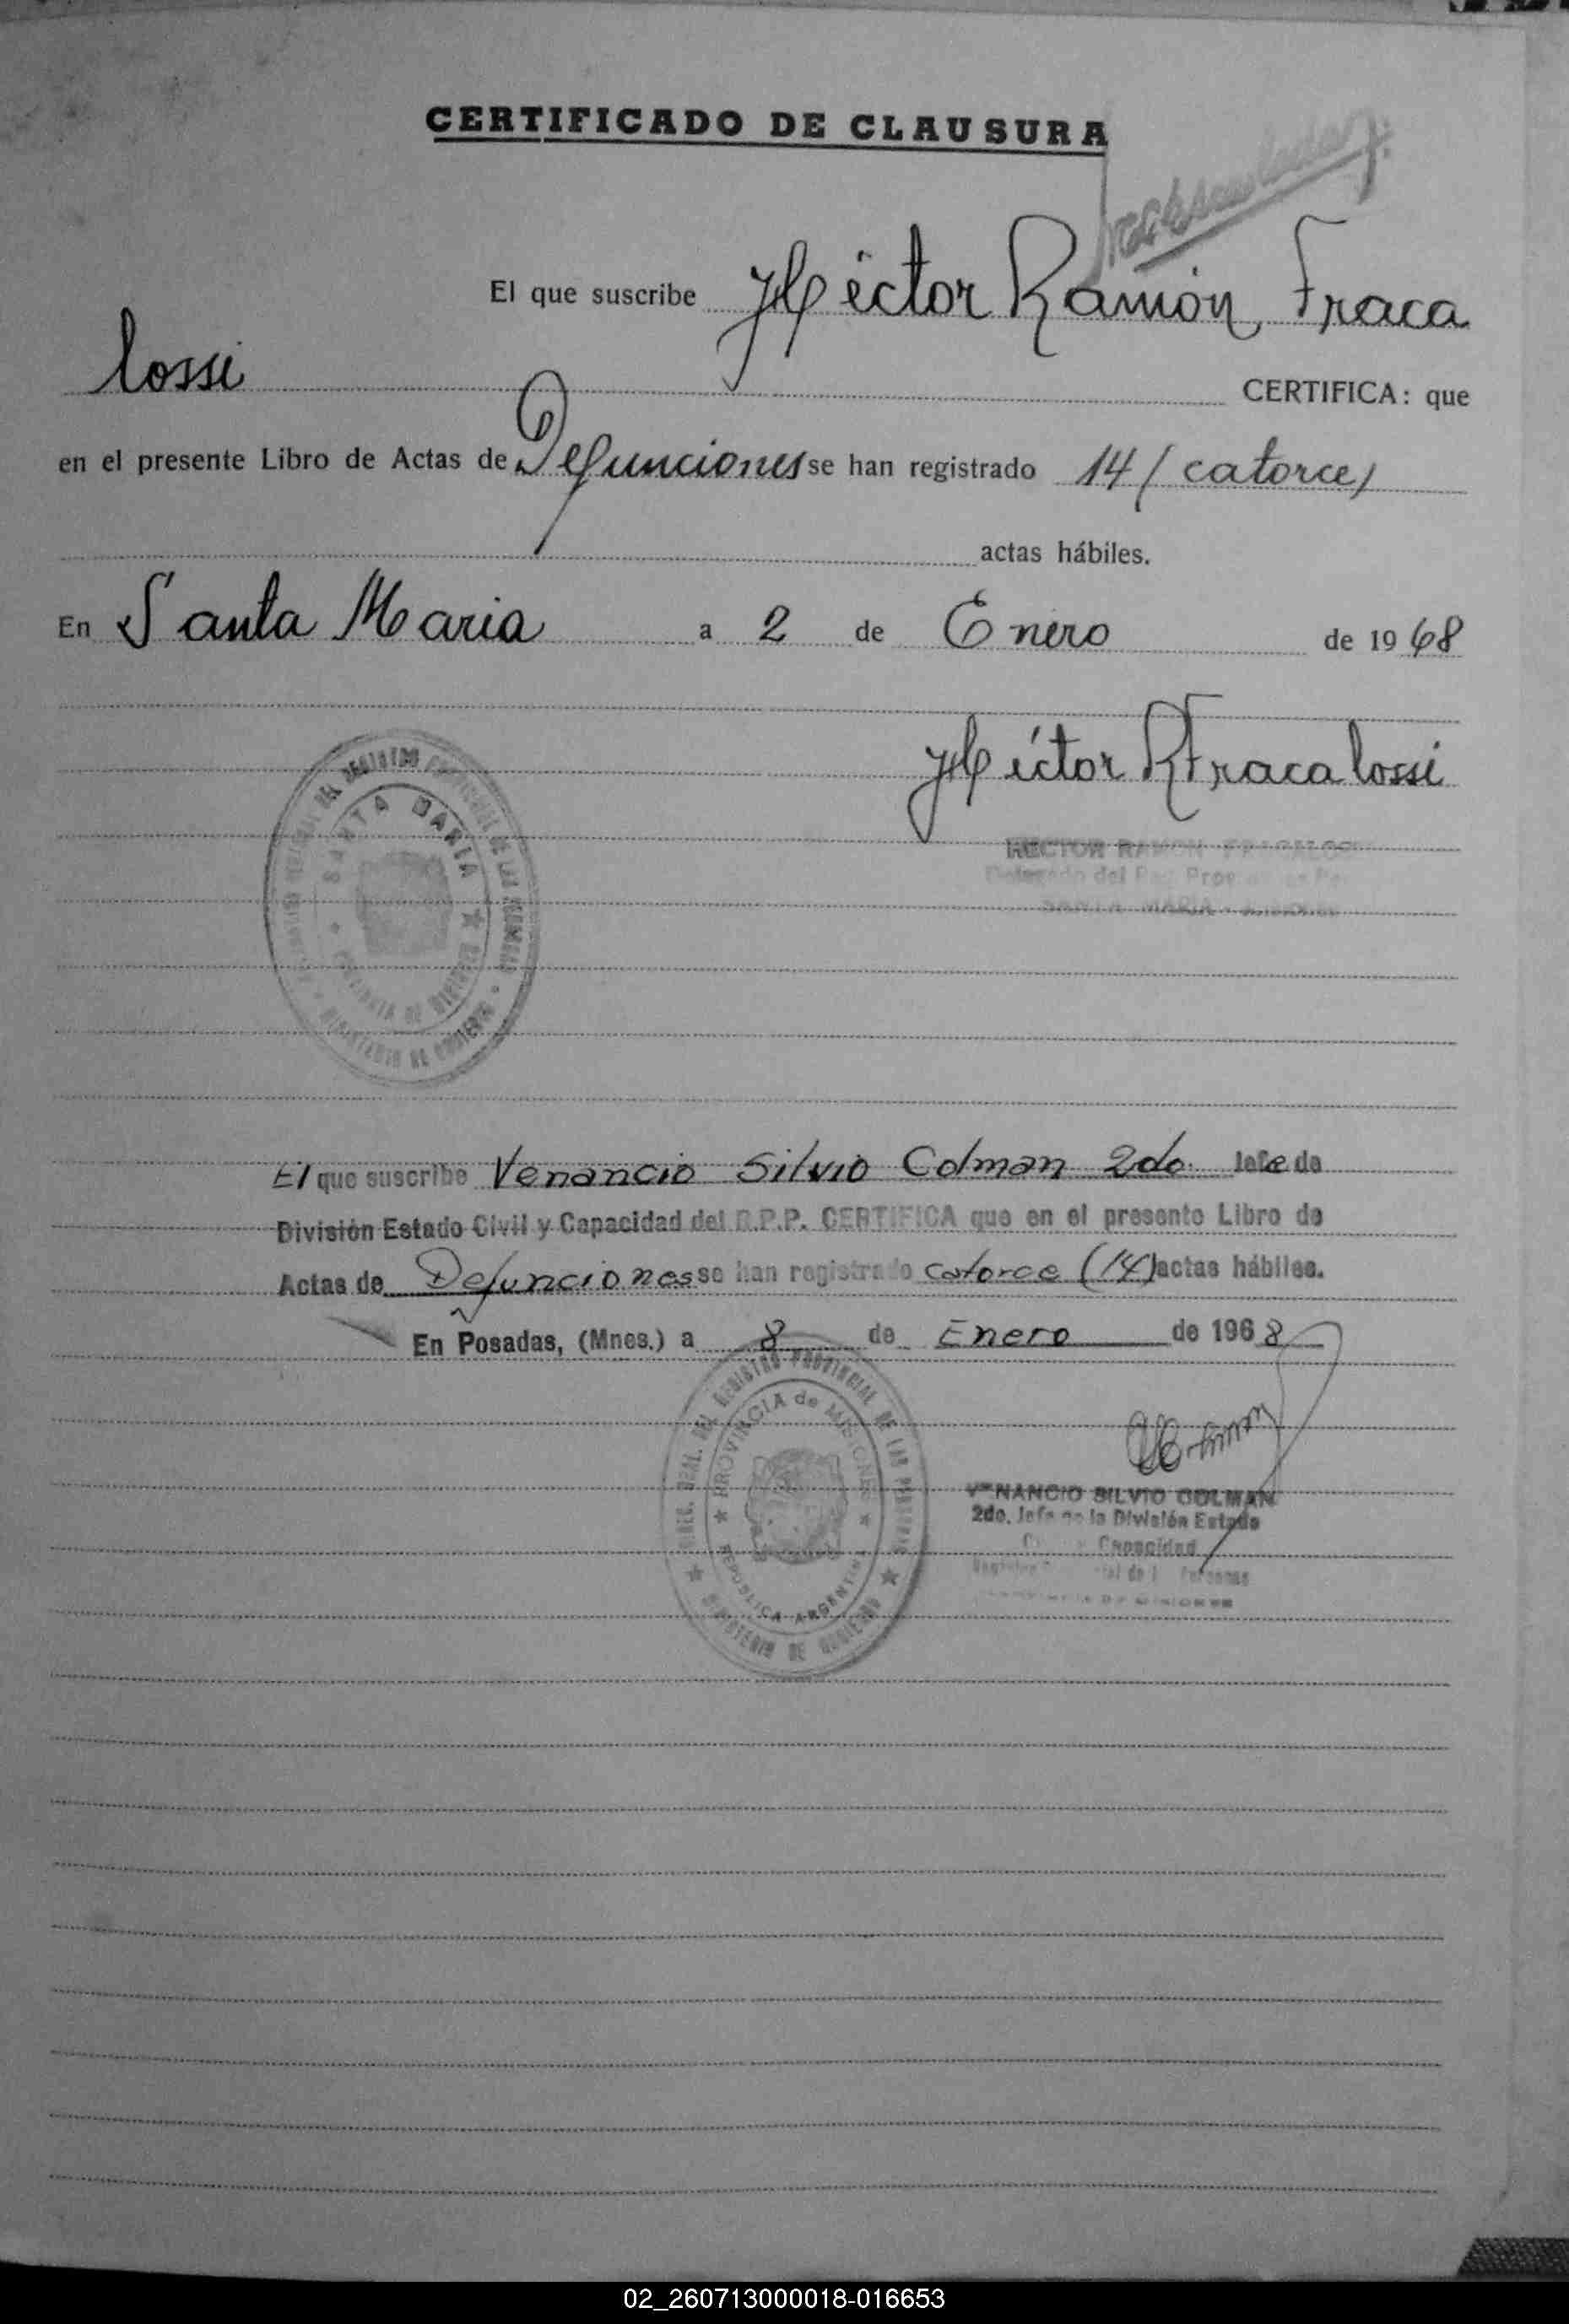 CERTIFICADO DE CLAUSURA
El que suscribe Héctor Ramón Fraca
lossi CERTIFICA: que
en el presente Libro de Actas de Defunciones se han registrado 14/ catorce/
actas hábiles.
En Santa Maria a 2 de Enero de 1968
Héctor R Fracalossi
HECTOR RAMON FRACALOSSI
SANTA MARIA
SANTA MARIA
El que suscribe Venancio Silvio Colman 2do. Jefe de
División Estado Civil y Capacidad del R.P.P. CERTIFICA que en el presente Libro de
Actas de Defunciones se han registrado catorce (14) actas hábiles.
En Posadas, (Mnes.) a 8 de Enero de 1968
DIREC. GRAL. DEL REGISTRO PROVINCIAL DE LAS PERSONAS
PROVINCIA de MISIONES
REPUBLICA ARGENTINA
MINISTERIO DE GOBIERNO
VENANCIO SILVIO COLMAN
2do. Jefe de la División Estado
Capacidad
02_260713000018-016653